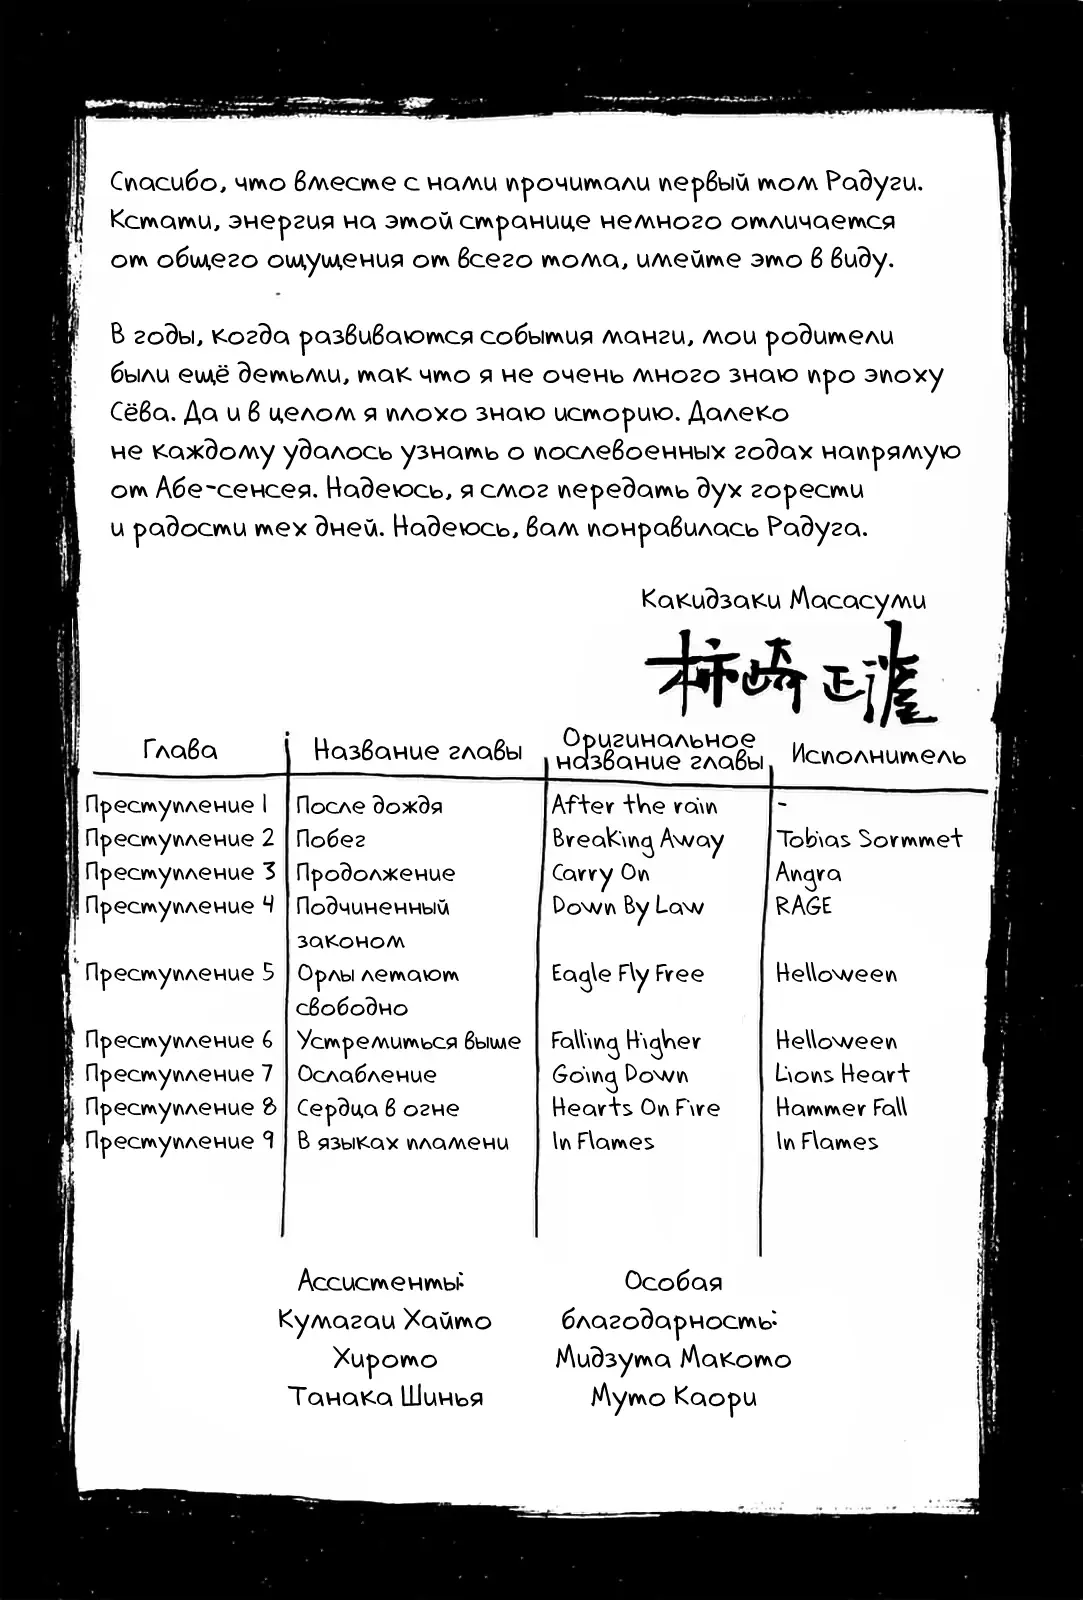 Спасибо, что вместе с нами прочитали первый том Радуги.
Кстати, энергия на этой странице немного отличается
от общего ощущения от всего тома, имейте это в виду.
В годы, когда развиваются события манги, мои родители
были ещё детьми, так что я не очень много знаю про эпоху
Сёва. Да и в целом я плохо знаю историю. Далеко
не каждому удалось узнать о послевоенных годах напрямую
от Абе-сенсея. Надеюсь, я смог передать дух горести
и радости тех дней. Надеюсь, вам понравилась Радуга.
Какидзаки Масасуми
柿崎正澄
Глава Название главы Оригинальное название главы Исполнитель
Преступление 1 После дождя After the rain -
Преступление 2 Побег Breaking Away Tobias Sormmet
Преступление 3 Продолжение Carry On Angra
Преступление 4 Подчиненный законом Down By Law RAGE
Преступление 5 Орлы летают свободно Eagle Fly Free Helloween
Преступление 6 Устремиться выше Falling Higher Helloween
Преступление 7 Ослабление Going Down Lions Heart
Преступление 8 Сердца в огне Hearts On Fire Hammer Fall
Преступление 9 В языках пламени In Flames In Flames
Ассистенты:
Кумагаи Хайто
Хирото
Танака Шинья
Особая
благодарность:
Мидзута Макото
Муто Каори